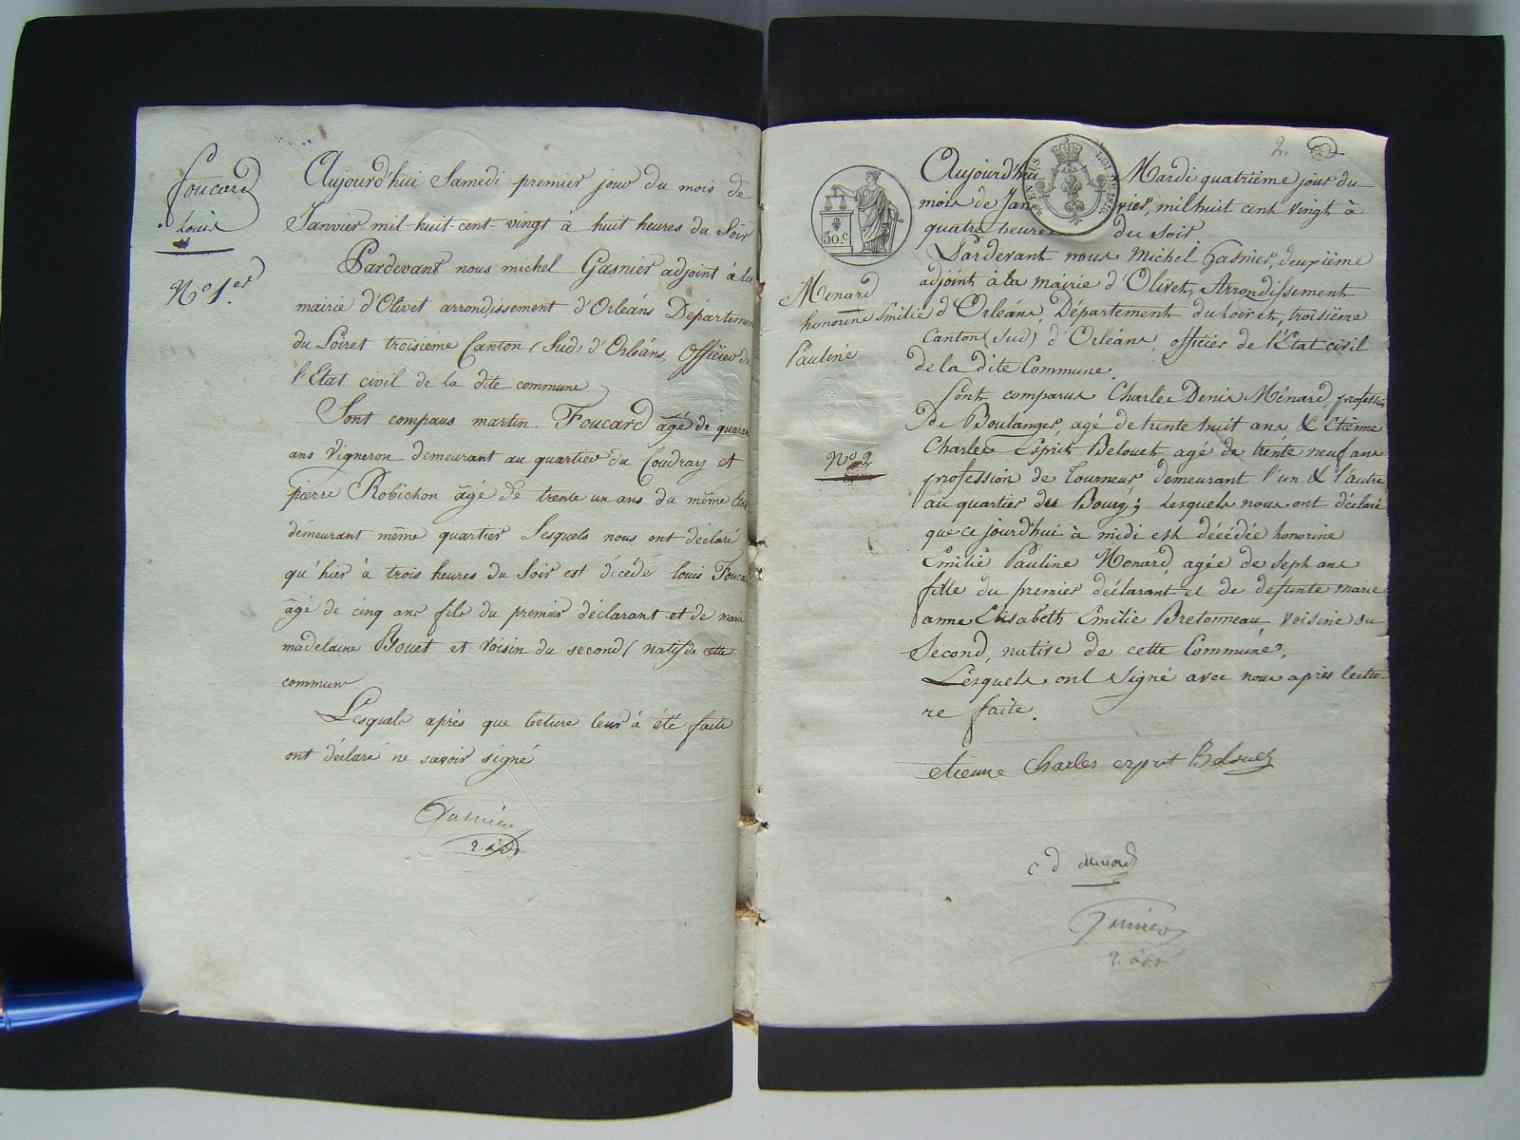 Foucard
Louis
N° 1er
Aujourd'hui Samedi premier jour du mois de
Janvier mil-huit-cent-vingt à huit heures du Soir
Pardevant nous michel Gasnier adjoint à la
mairie d'Olivet arrondissement d'Orleáns Departemen
du Loiret troisieme Canton (Sud) d'Orleáns, Officier de
l'Etat civil de la dite commune
Sont comparus martin Foucard agé de quaran
ans Vigneron demeurant au quartier du Coudray et
pierre Robichon agé de trente un ans du même
demeurant même quartier Lesquels nous ont declaré
qu'hier à trois heures du Soir est décédé louis Fouca
agé de cinq ans fils du premier déclarant et de marie
madelaine Bouet et Voisin du second (natif de cette
commune
Lesquels après que lecture leur à été faite
ont déclaré ne savoir signé
Gasnier
2. adj
2.
30.c
Menard
honorine Emilie
Pauline
N° 2
Aujourd'hui Mardi quatrième jour du
mois de Janvier, mil huit cent vingt à
quatre heures du Soir
Pardevant nous Michel Gasnier, deuxième
adjoint à la mairie d'Olivet, Arrondissement
d'Orléans, Département du Loiret, troisième
Canton (Sud) d'Orléans, officier de l'Etat civil
de la dite Commune.
Sont comparus Charles Denis Ménard, profession
de Boulanger, agé de trente huit ans & Etienne
Charles Esprit Belouet agé de trente neuf ans
profession de Tourneur demeurant l'un & l'autre
au quartier du Bourg; Lesquels nous ont déclaré
que ce jourd'hui à midi est décédée honorine
Emilie Pauline Menard, agée de Sept ans
fille du premier déclarant et de defunte marie
anne Elisabeth Emilie Bretonneau Voisine du
Second, native de cette Commune.
Lesquels ont Signé avec nous après lectu-
re faite.
etienne Charles esprit Belouet
c d menard
Gasnier
2. adj